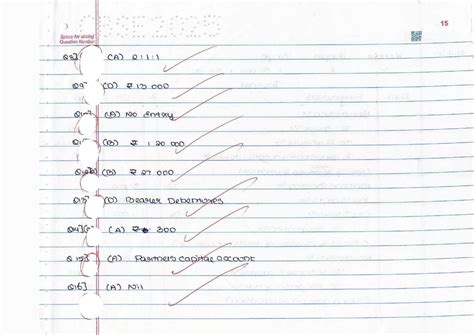 CBSE 2025
15
Space for writing
Question Number
Q8] (A) 2:1:1
Q9 (D) ₹ 13 000
Q10 (A) No Entry
Q1 (B) ₹ 1 20 000
Q12 (B) ₹ 27 000
Q13 (D) Bearer Debentures
Q (A) ₹ 300
Q15] (A) Partners capital account
Q16] (A) Nil